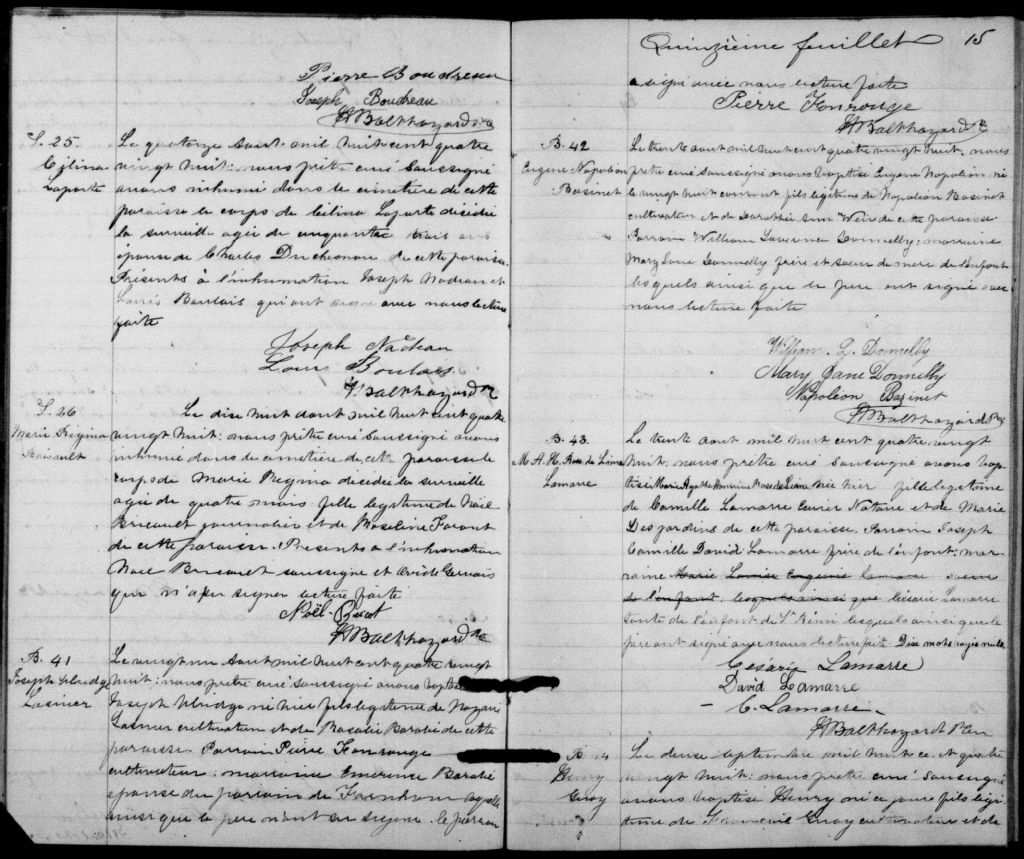 Pierre Boudreau
Joseph Boudreau
JABalthazard Ptre
S. 25.
Célina
Laporte
Le quatorze août mil huit cent quatre
vingt huit: nous prêtre curé soussigné
avons inhumé dans le cimetière de cette
paroisse le corps de Célina Laporte décédée
la surveille agée de cinquante trois ans
épouse de Charles Duchesneau de cette paroisse.
Présents à l'inhumation Joseph Nadeau et
Louis Boulais qui ont signé avec nous lecture
faite
Joseph Nadeau
Louis Boulais
JABalthazard Ptre
S. 26
Marie Regina
Le dix huit d'août mil huit cent quatre
vingt huit: nous prêtre curé soussigné avons
inhumé dans le cimetière de cette paroisse le
corps de Marie Regina décédée la surveille
agée de quatre mois fille légitime de Noël
journalier et de Roseline
de cette paroisse. Présents à l'inhumation
Noël soussigné et Gervais
qui n'a pu signer lecture faite
Noël
JABalthazard Ptre
B. 41
Joseph
Le vingt un août mil huit cent quatre vingt
huit: nous prêtre curé soussigné avons baptisé
Joseph né hier fils légitime de
cultivateur et de Rosalie de cette
paroisse Parrain Pierre Fonrouge
cultivateur: marraine
épouse du parrain de Farnham laquelle
ainsi que le père n'ont su signer. le parrain
Quinzième feuillet 15
a signé avec nous lecture faite
Pierre Fonrouge
JABalthazard Ptre
B. 42
Eugene Napoleon
Basinet
Le trente août mil huit cent quatre vingt huit: nous
prêtre curé soussigné avons baptisé Eugene Napoleon né
le vingt huit courant fils légitime de Napoleon Basinet
cultivateur et de Dorothée Ann Weir de cette paroisse
Parrain William Donnelly: marraine
Mary Jane Donnelly frère et soeur de mère de l'enfant
lesquels ainsi que le père ont signé avec
nous lecture faite
William L. Donnelly
Mary Jane Donnelly
Napoleon Bazinet
JABalthazard Ptre
B. 43.
M. A. H. Rose de Lima
Lamarre
Le trente août mil huit cent quatre vingt
huit: nous prêtre curé soussigné avons bap
tisé Marie Rose de Lima née hier fille légitime
de Camille Lamarre Notaire et de Marie
Desjardins de cette paroisse. Parrain Joseph
Camille David Lamarre frère de l'enfant: mar
raine Marie Louise Eugenie Lamarre soeur
de l'enfant. lesquels ainsi que Césarie Lamarre
tante de l'enfant de St Rémi lesquels ainsi que le
père ont signé avec nous lecture faite Dix mots rayés nuls
Césarie Lamarre
David Lamarre
C. Lamarre
JABalthazard Ptre
B. 44
Henry
Le deux septembre mil huit cent quatre
vingt huit: nous prêtre curé soussigné
avons baptisé Henry né ce jour fils légi
time de cultivateur et de